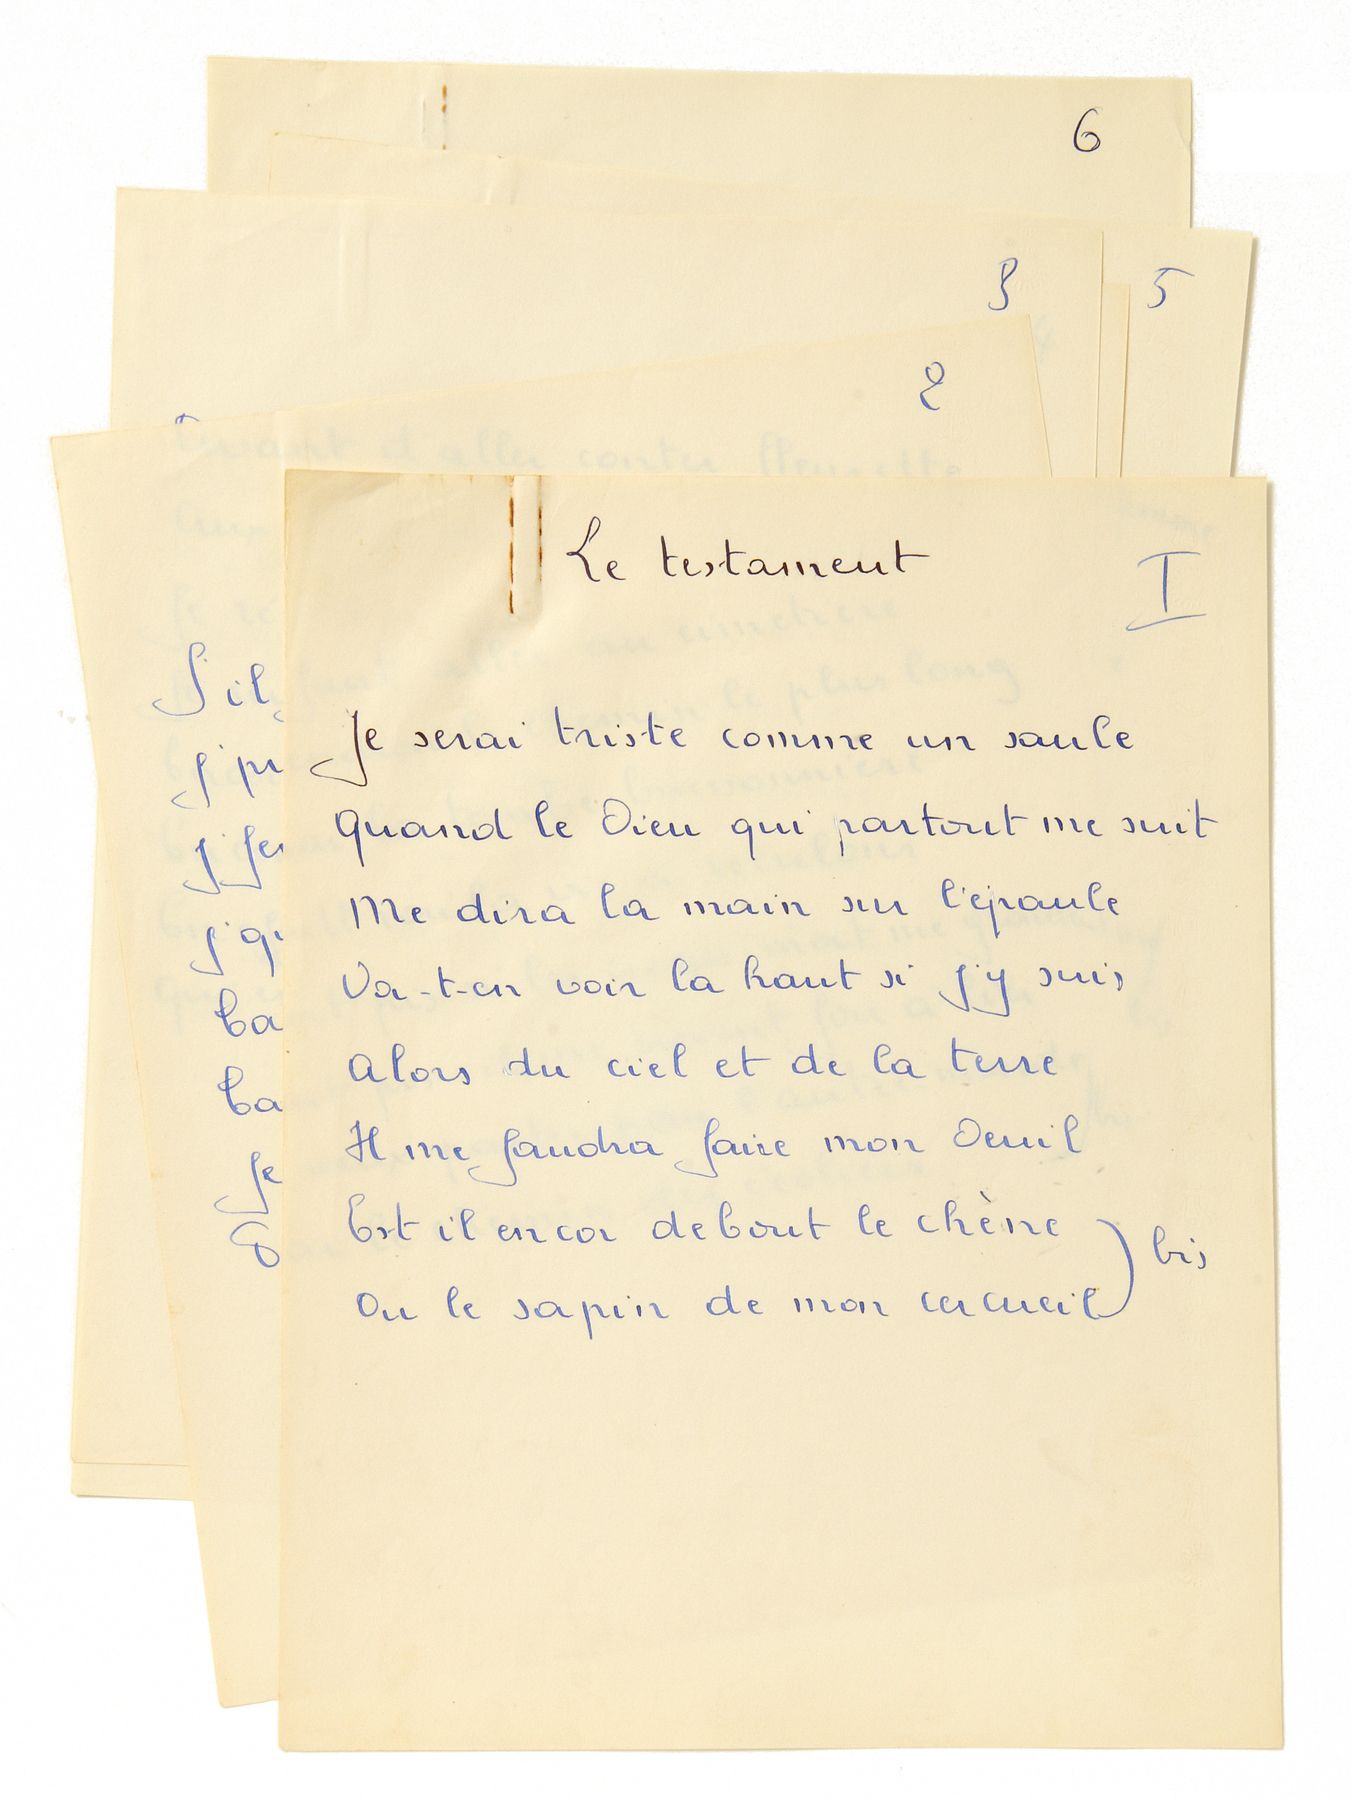 6
3
5
2
Le testament
I
Je serai triste comme un saule
Quand le Dieu qui partout me suit
Me dira la main sur l'épaule
Va-t-en voir la haut si j'y suis
Alors du ciel et de la terre
Il me faudra faire mon deuil
Est il encor debout le chêne
Ou le sapin de mon cercueil
bis
S'il
j'pr
j'fer
j'qu
ba
ba
Je